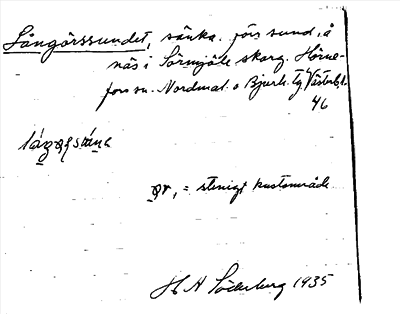 Långörssundet, sänka. förs sund, å
näs i Sörmjöle skärg. Hörne-
fors sn. Nordmal. o Bjurh. tg Västerb. l.
46
= stenigt kustområde
H A Söderberg 1935